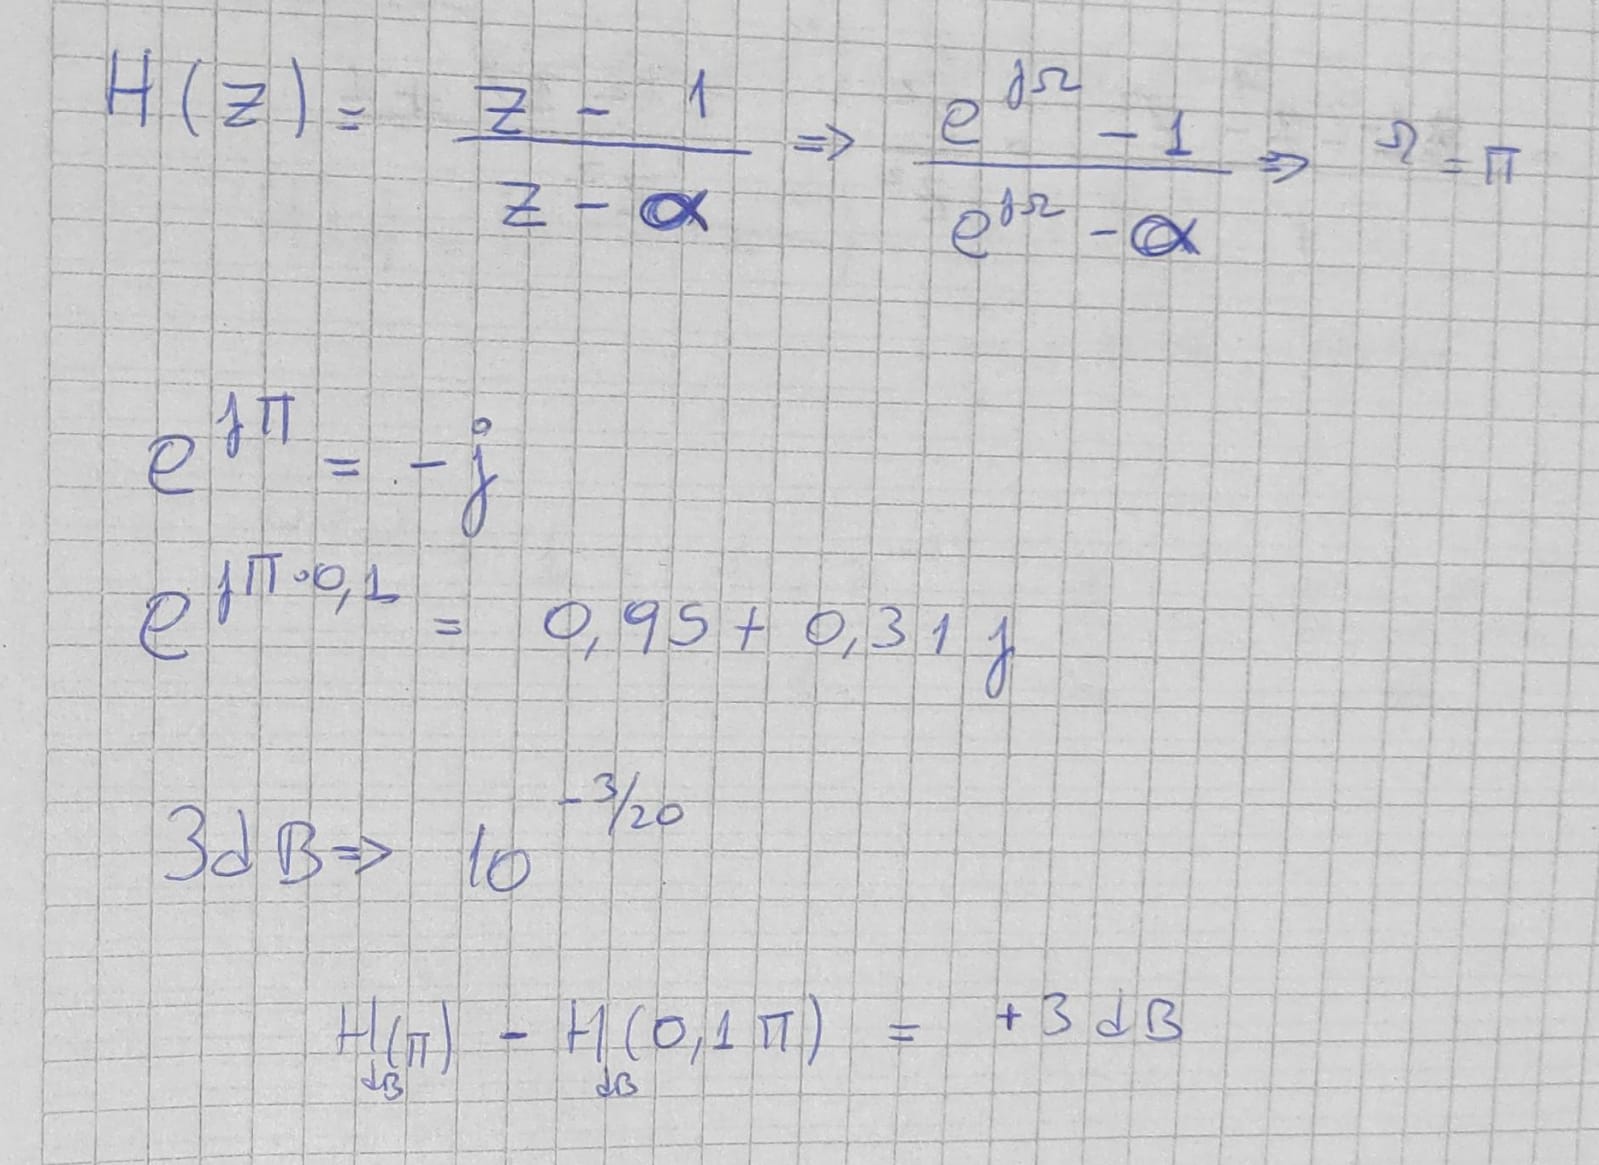 H(z) = (z - 1)/(z - α) => (e^{jΩ} - 1)/(e^{jΩ} - α) => Ω = π
e^{jπ} = -j
e^{jπ·0,1} = 0,95 + 0,31 j
3dB => 10^{-3/20}
H_{dB}(π) - H_{dB}(0,1π) = +3 dB